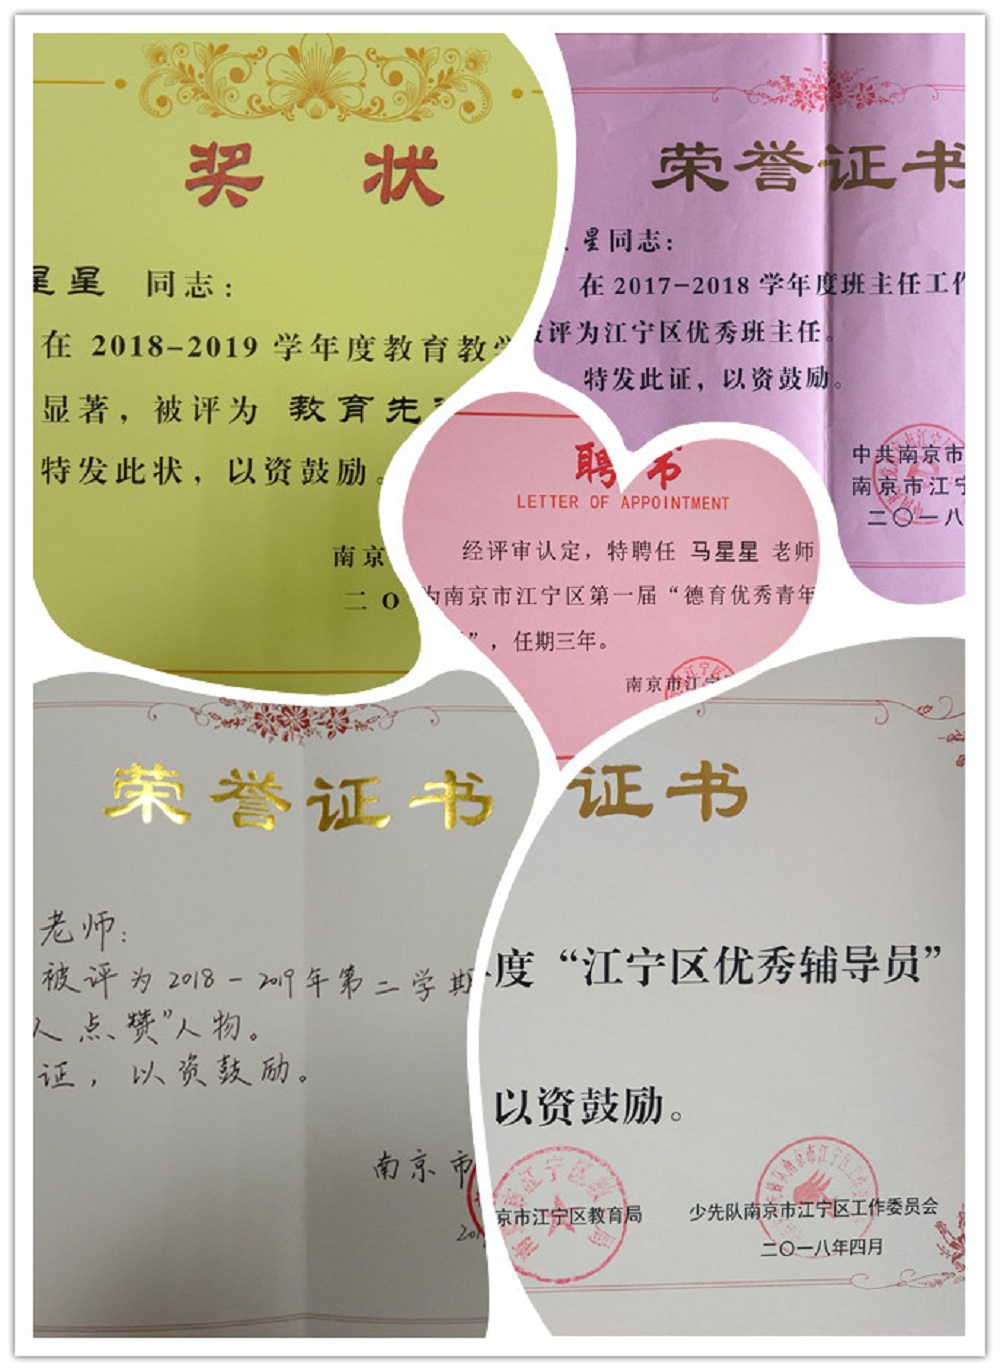 奖 状
星星 同志：
在 2018-2019 学年度教育教学
显著，被评为 教育先
特发此状，以资鼓励。
南京
二 O
荣誉证书
星同志：
在 2017-2018 学年度班主任工作
被评为江宁区优秀班主任。
特发此证，以资鼓励。
中共南京市
南京市江宁
二〇一八
聘书
LETTER OF APPOINTMENT
经评审认定，特聘任 马星星 老师
为南京市江宁区第一届“德育优秀青年
”，任期三年。
南京市江宁
荣誉证书
老师：
被评为2018-2019年第二学期
人点赞”人物。
证，以资鼓励。
南京市
201
证书
度“江宁区优秀辅导员”
以资鼓励。
京市江宁区教育局
少先队南京市江宁区工作委员会
二〇一八年四月